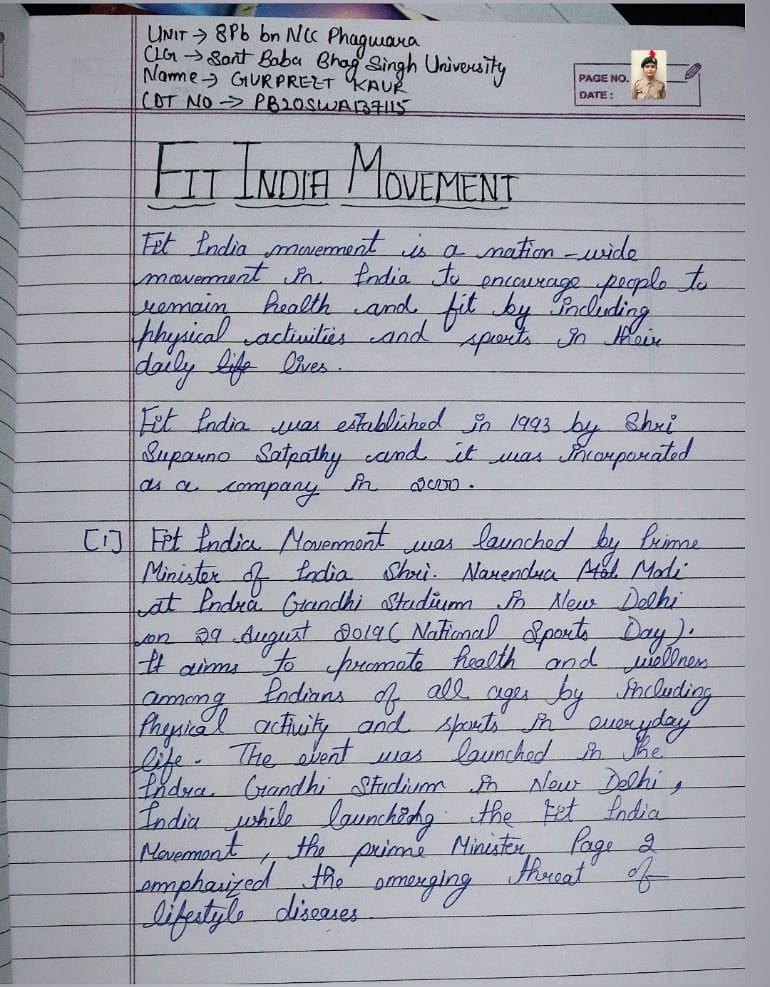 UNIT → 8Pb bn NCC Phagwara
CLG → Sant Baba Bhag Singh University
Name → GURPREET KAUR
CDT NO → PB20SWA137115
PAGE NO.
DATE :
FIT INDIA MOVEMENT
Fit India movement is a nation-wide
movement in India to encourage people to
remain health and fit by including
physical activities and sports in their
daily life lives.
Fit India was established in 1993 by Shri
Suparno Satpathy and it was incorporated
as a company in 2000.
[1] Fit India Movement was launched by Prime
Minister of India Shri. Narendra Mod Modi
at Indra Gandhi Stadium in New Delhi
on 29 August 2019 ( National Sports Day ).
It aims to promote health and wellness
among Indians of all ages by including
Physical activity and sports in everyday
life. The event was launched in the
Indra Gandhi Stadium in New Delhi,
India while launching the Fit India
Movement, the prime Minister Page 2
emphasized the emerging threat of
lifestyle diseases.